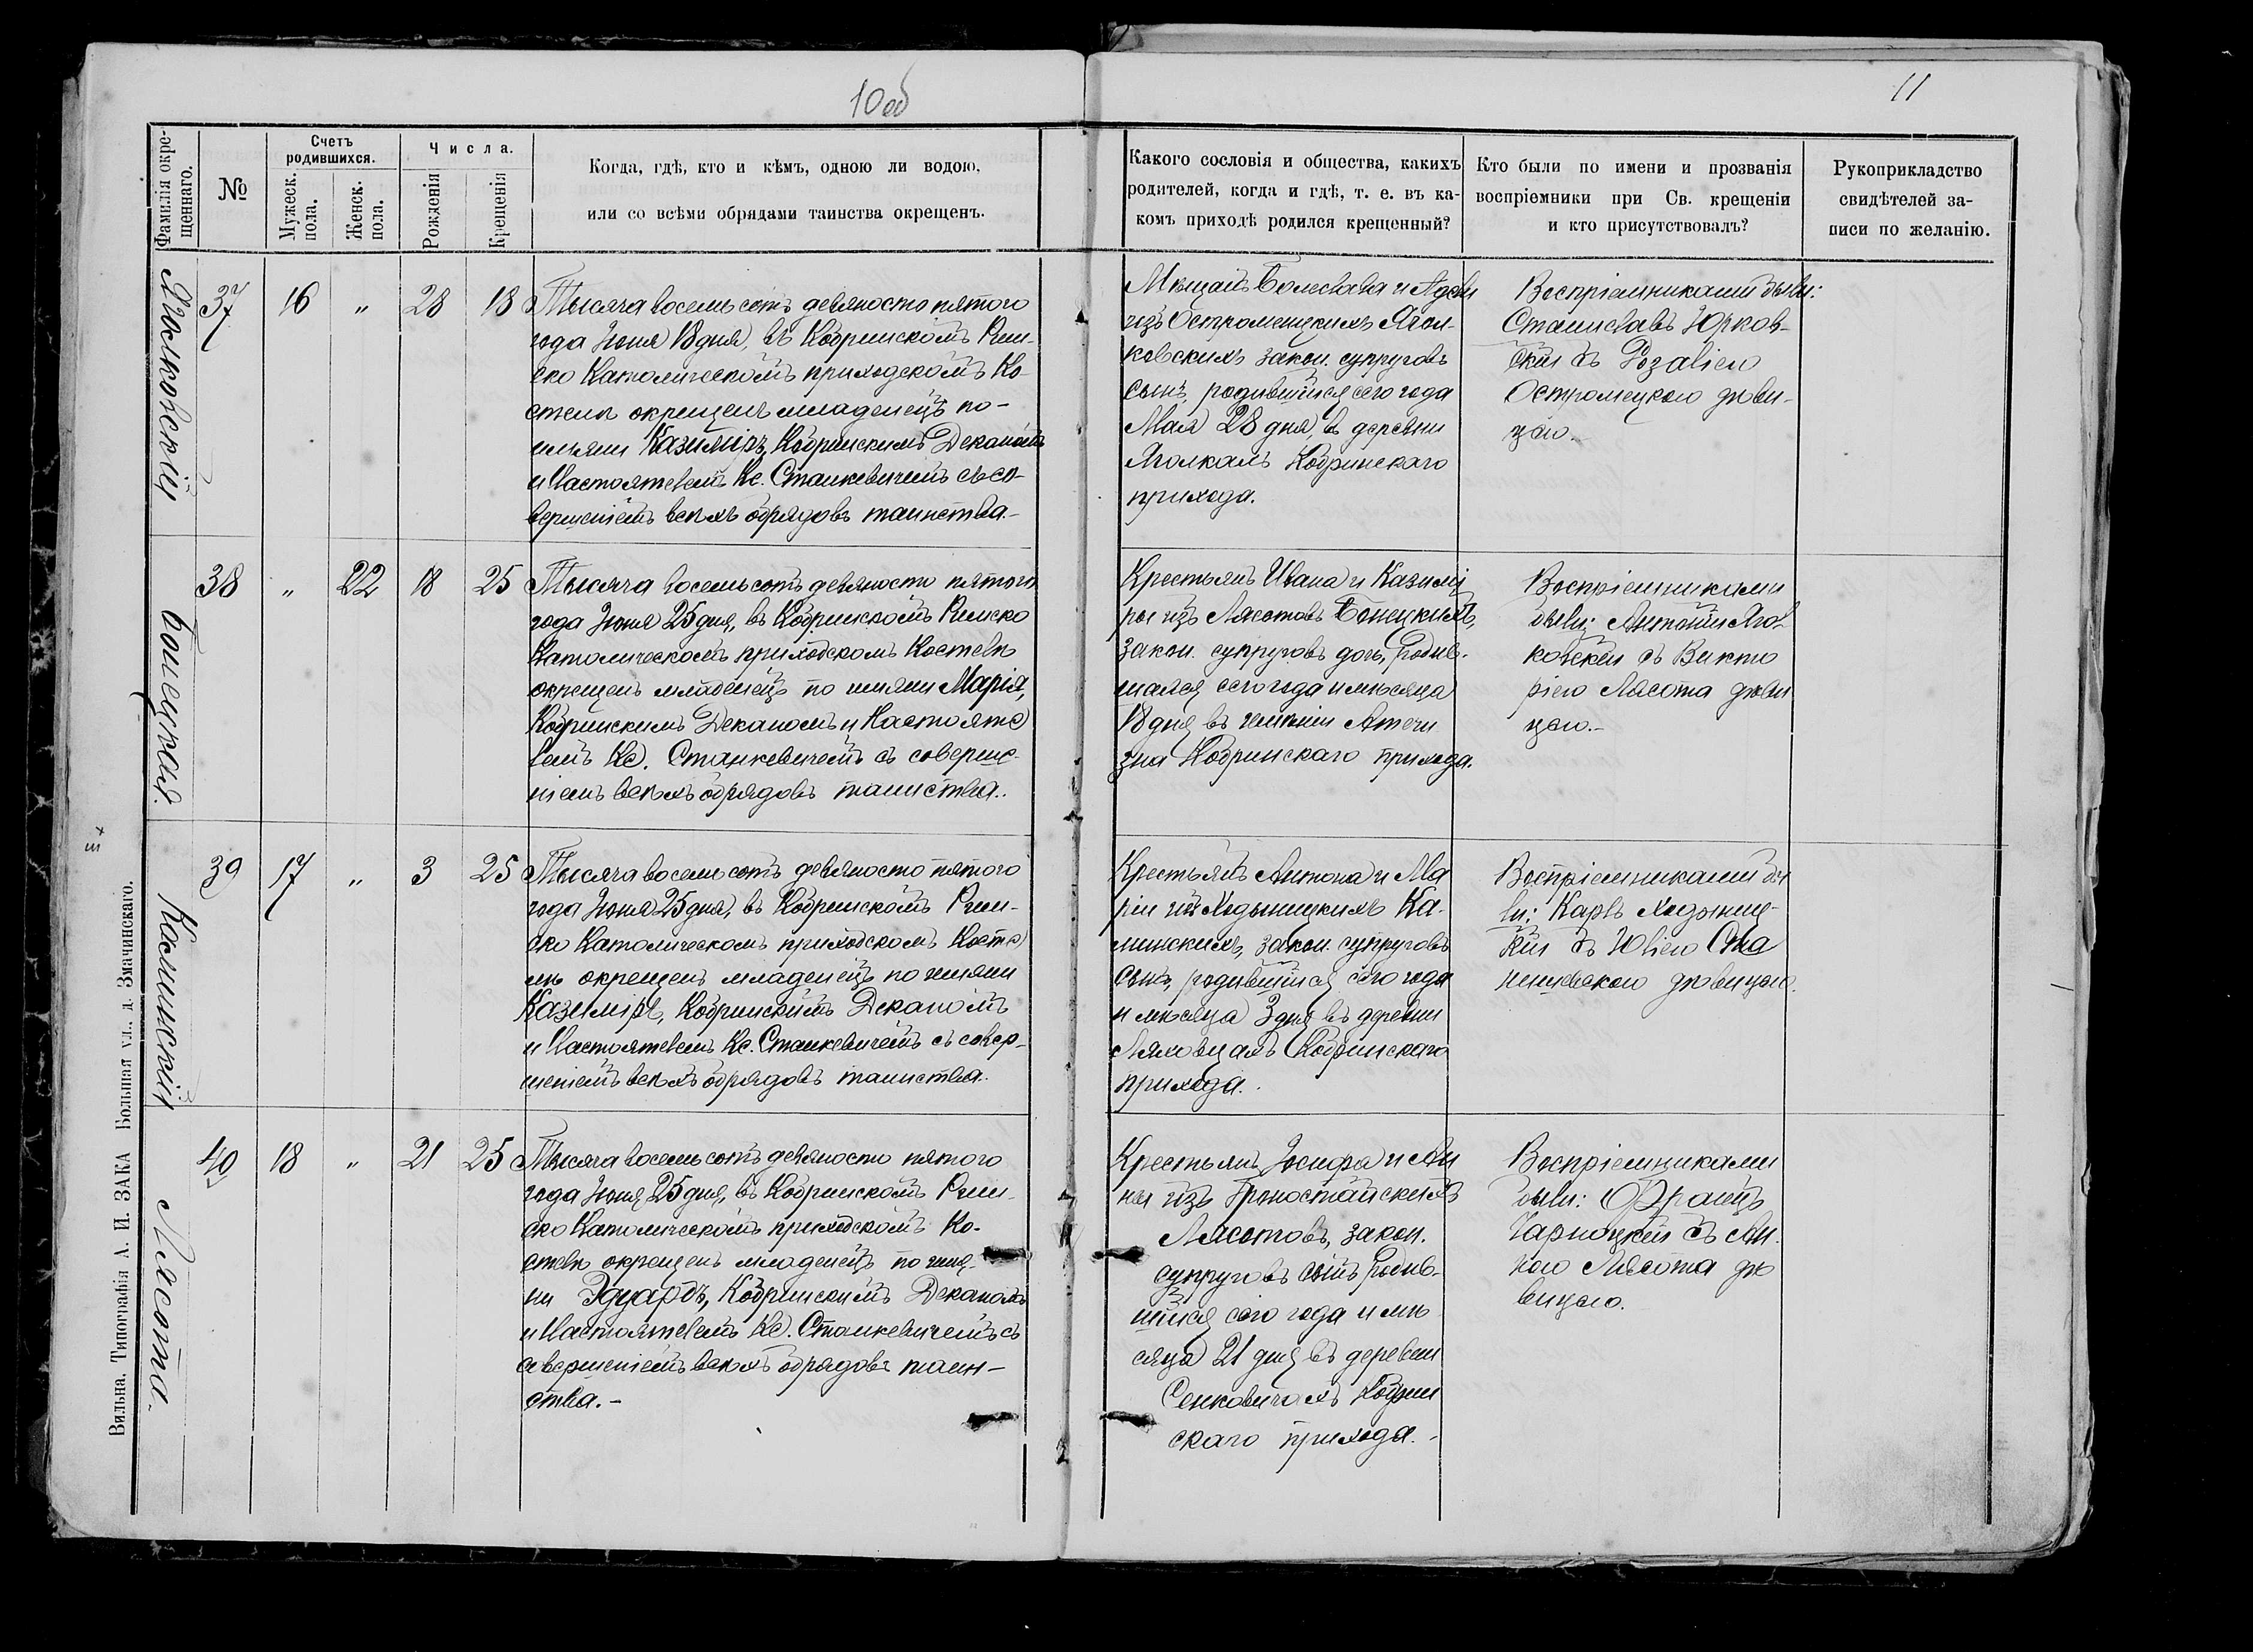 10 об
11
Фамилія окре-
щеннаго.
№
Счетъ
родившихся.
Мужеск.
пола.
Женск.
пола.
Числа.
Рожденія
Крещенія
Когда, гдѣ, кто и кѣмъ, одною ли водою,
или со всѣми обрядами таинства окрещенъ.
Какого сословія и общества, какихъ
родителей, когда и гдѣ, т. е. въ ка-
комъ приходѣ родился крещенный?
Кто были по имени и прозванія
воспріемники при Св. крещеніи
и кто присутствовалъ?
Рукоприкладство
свидѣтелей за-
писи по желанію.
37 16 „ 28 18
Тысяча восемь сотъ девяносто пятого
года Іюня 18 дня, въ Кобринскомъ Рим-
ско Католическомъ приходскомъ Ко-
стелѣ окрещенъ младенецъ по-
имяни Казиміръ, Кобринскимъ Деканомъ
и Настоятелемъ Кс. Станкевичемъ съ со-
вершеніемъ всѣхъ обрядовъ таинства.-
Мѣщанъ Болеслава и Адели
изъ Остромецкихъ Ягол-
ковскихъ закон. супруговъ
сынъ, родившійся сего года
Мая 28 дня, въ деревни
Яголкахъ Кобринскаго
прихода.
Воспріемниками были:
Станиславъ Юрков-
скій съ Розаліею
Остромецкою дѣви-
цею.-
38 „ 22 18 25
Бонецкая.
Тысяча восемь сотъ девяносто пятого
года Іюня 25 дня, въ Кобринскомъ Римско
Католическомъ приходскомъ Костелѣ
окрещенъ младенецъ по имяни Марія,
Кобринскимъ Деканомъ и Настояте
лемъ Кс. Станкевичемъ съ соверше-
ніемъ всѣхъ обрядовъ таинства..
Крестьянъ Ивана и Казимі
ры изъ Лясотовъ Бонецкихъ,
закон. супруговъ дочь, родив-
шаяся сего года и мѣсяца
18 дня въ имѣніи
Кобринскаго прихода.
Воспріемниками
были: Антоній
съ Викто
ріею Лясота дѣви
цею.-
39 17 „ 3 25
Каминскій
Тысяча восемь сотъ девяносто пятого
года Іюня 25 дня, въ Кобринскомъ Рим-
ско Католическомъ приходскомъ Косте
лѣ окрещенъ младенецъ по имяни
Казиміръ, Кобринскимъ Деканомъ
и Настоятелемъ Кс. Станкевичемъ съ совер-
шеніемъ всѣхъ обрядовъ таинства..
Крестьянъ Антона и Ма
ріи изъ Ходыницкихъ Ка-
минскихъ, закон. супруговъ
сынъ, родившійся сего года
и мѣсяца 3 дня въ деревни
Ляховцахъ Кобринскаго
прихода..
Воспріемниками бы
ли: Карлъ Ходыниц-
кій съ Юліею
дѣвицею.
40 18 „ 21 25
Лясота.
Тысяча восемь сотъ девяносто пятого
года Іюня 25 дня, въ Кобринскомъ Рим-
ско Католическомъ приходскомъ Ко-
стелѣ окрещенъ младенецъ по имя-
ни Эдуардъ, Кобринскимъ Деканомъ
и Настоятелемъ Кс. Станкевичемъ съ
совершеніемъ всѣхъ обрядовъ таин-
ства.-
Крестьянъ Іосифа и Ан
ны изъ Гроностайскихъ
Лясотовъ, закон.
супруговъ сынъ, родив-
шійся сего года и мѣ
сяца 21 дня въ деревни
Сенковичахъ Кобрин
скаго прихода.-
Воспріемниками
были: Францъ
Чарноцкій съ Ан-
ною Лясота дѣ
вицею.
Вильна. Типографія А. И. ЗАКА Большая ул., д. Значинскаго.